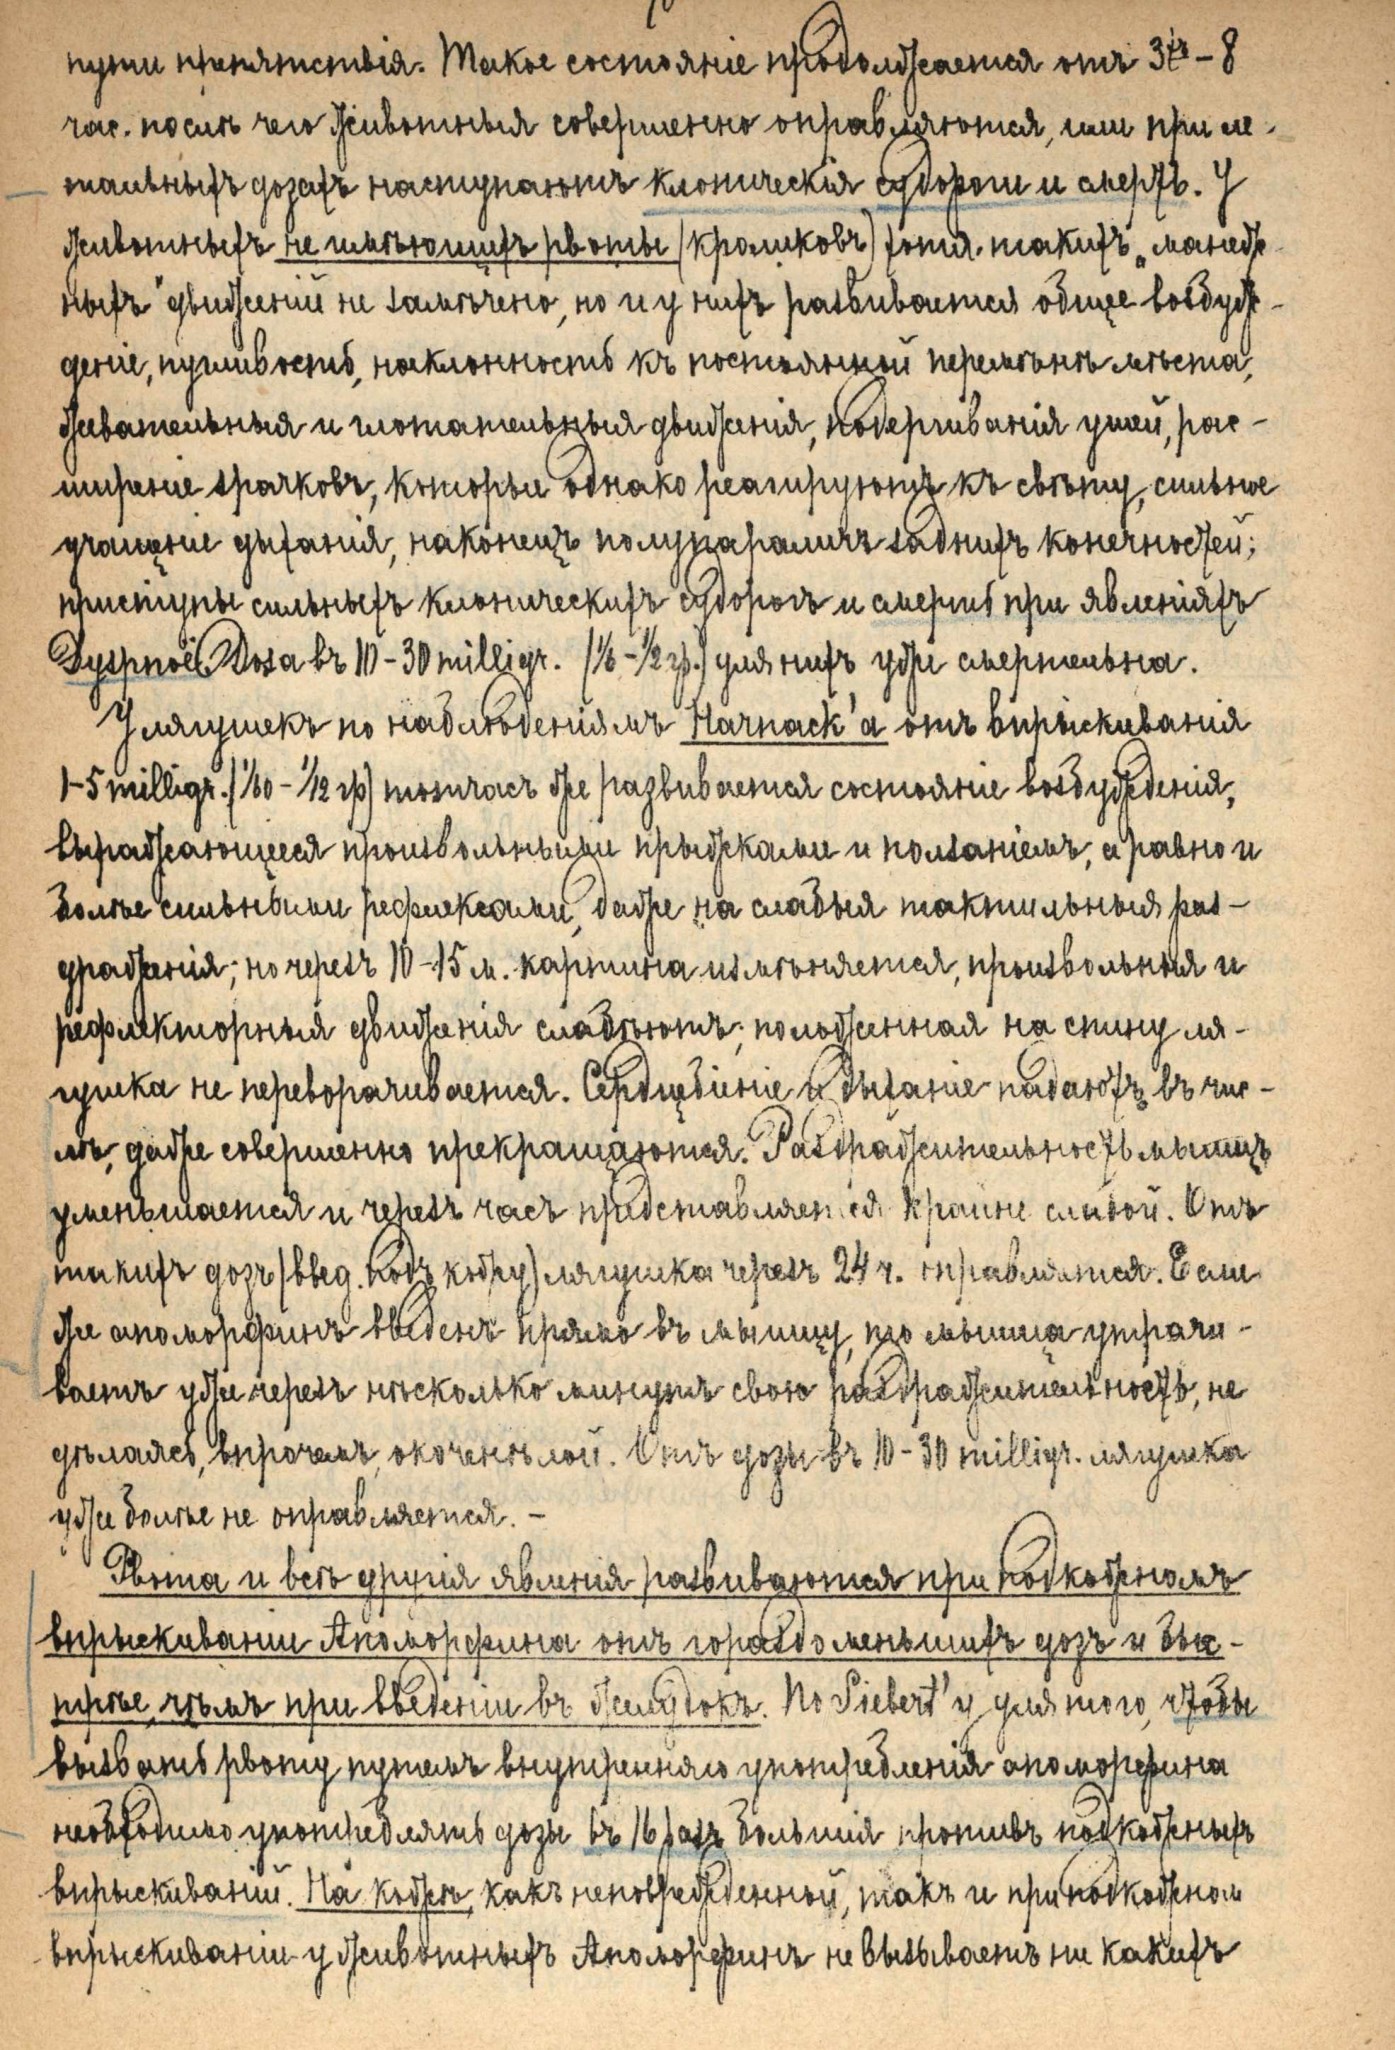 пути препятствія. Такое состояніе продолжается отъ 3хъ – 8
час. послѣ чего животныя совершенно оправляются, или при ле-
тальныхъ дозахъ наступаютъ клоническія судороги и смерть. У
животныхъ не имѣющихъ рвоты (кроликовъ) хотя такихъ „манеж-
ныхъ" движеній не замѣчено, но и у нихъ развивается общее возбуж-
деніе, пугливость, наклонность къ постоянной перемѣнѣ мѣста,
жевательныя и глотательныя движенія, подергиванія ушей, рас-
ширеніе зрачковъ, которые однако реагируютъ къ свѣту, сильное
учащеніе дыханія, наконецъ полупараличъ заднихъ конечностей;
приступы сильныхъ клоническихъ судорогъ и смерть при явленіяхъ
Dyspnoë. Доза въ 10–30 milligr. (1/6 – 1/2 гр.) для нихъ уже смертельна.
У лягушекъ по наблюденіямъ Harnack'а отъ впрыскиванія
1–5 milligr. (1/60 – 1/12 гр) тотчасъ же развивается состояніе возбужденія,
выражающееся произвольными прыжками и ползаніемъ, а равно и
болѣе сильными рефлексами, даже на слабыя тактильныя раз-
драженія; но черезъ 10–15 м. картина измѣняется, произвольныя и
рефлекторныя движенія слабѣютъ; положенная на спину ля-
гушка не переворачивается. Сердцебіеніе и дыханіе падаютъ въ чис-
лѣ, даже совершенно прекращаются. Раздражительность мышцъ
уменьшается и черезъ часъ представляется крайне слабой. Отъ
такихъ дозъ (введ. подъ кожу) лягушка черезъ 24 ч. оправляется. Если
же апоморфинъ введенъ прямо въ мышцу, то мышца утрачи-
ваетъ уже черезъ нѣсколько минутъ свою раздражительность, не
дѣлаясь, впрочемъ, окоченѣлой. Отъ дозы въ 10–30 milligr. лягушка
уже болѣе не оправляется. –
Рвота и всѣ другія явленія развиваются при подкожномъ
впрыскиваніи Апоморфина отъ гораздо меньшихъ дозъ и быс-
трѣе, чѣмъ при введеніи въ желудокъ. По Siebert'у для того, чтобы
вызвать рвоту путемъ внутренняго употребленія апоморфина
необходимо употреблять дозы въ 16 разъ большія противъ подкожныхъ
впрыскиваній. На кожѣ, какъ неповрежденной, такъ и при подкожном
впрыскиваніи у животныхъ Апоморфинъ не вызываетъ ни какихъ